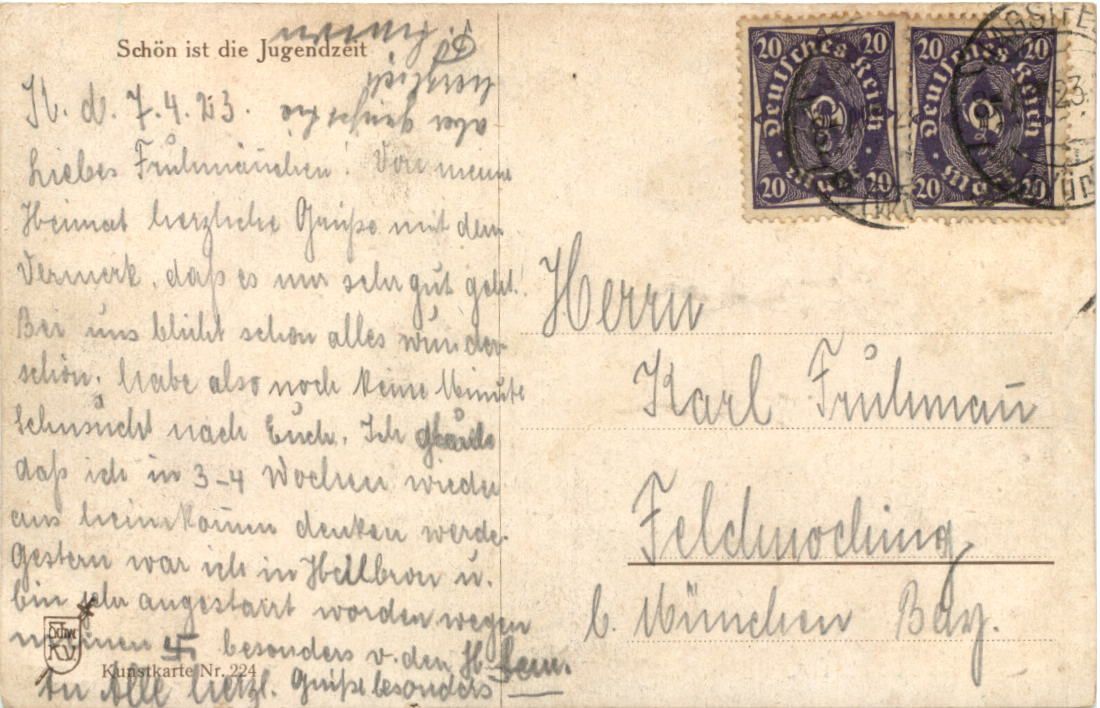 Schön ist die Jugendzeit
N. d. 7.4.23.
Liebes Frühmännchen! Von meine
Heimat herzliche Grüße mit dem
Vermerk, daß es mir sehr gut geht!
Bei uns blüht schon alles wunder-
schön, habe also noch keine Minute
Sehnsucht nach Euch. Ich glaube
daß ich in 3-4 Wochen wieder
ans heimkommen denken werde.
Gestern war ich in Heilbron u.
bin sehr angestarrt worden wegen
meinen 卐 besonders v. den
An Alle herzl. Grüße besonders
aber
herzlich
Kunstkarte Nr. 224
20 20
Deutsches Reich
Mark
20 20
20 20
Deutsches Reich
Mark
20 20
23.
Herrn
Karl Frühmau
Feldmoching
b. München Bay.